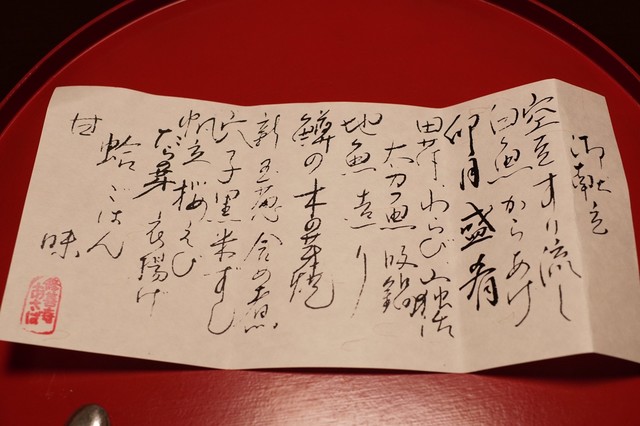 御献立
空豆すり流し
白魚からあげ
卯月盛肴
わらび
太刀魚
地魚造り
鱒の木の芽焼
新玉葱含め煮
穴子黒米ずし
帆立桜えび
たら芽衣揚げ
蛤ごはん
甘味